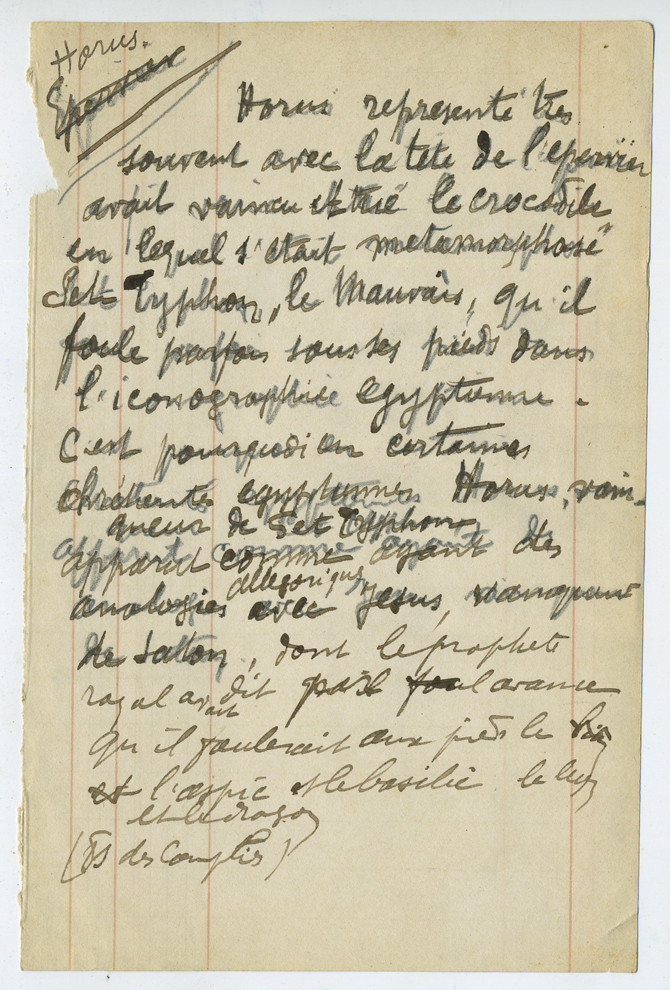 Horus.
Epervier
Horus representé très
souvent avec la tete de l'epervier
avait vaincu et tué le crocodile
en lequel s'était metamorphosé
Set Typhon, "le Mauvais", qu'il
foule parfois sous ses pieds dans
l'iconographie egyptienne.
C'est pourquoi en certaines
chrétientés egyptiennes Horus, vain-
queur de Set Typhon
apparut comme ayant des
analogies allegoriques avec Jesus, vainqueur
de Satan, dont le prophete
royal avait dit par avance
qu'il foulerait aux pieds le
et l'aspic et le basilic le lion
et le dragon
(Ps des Complies)